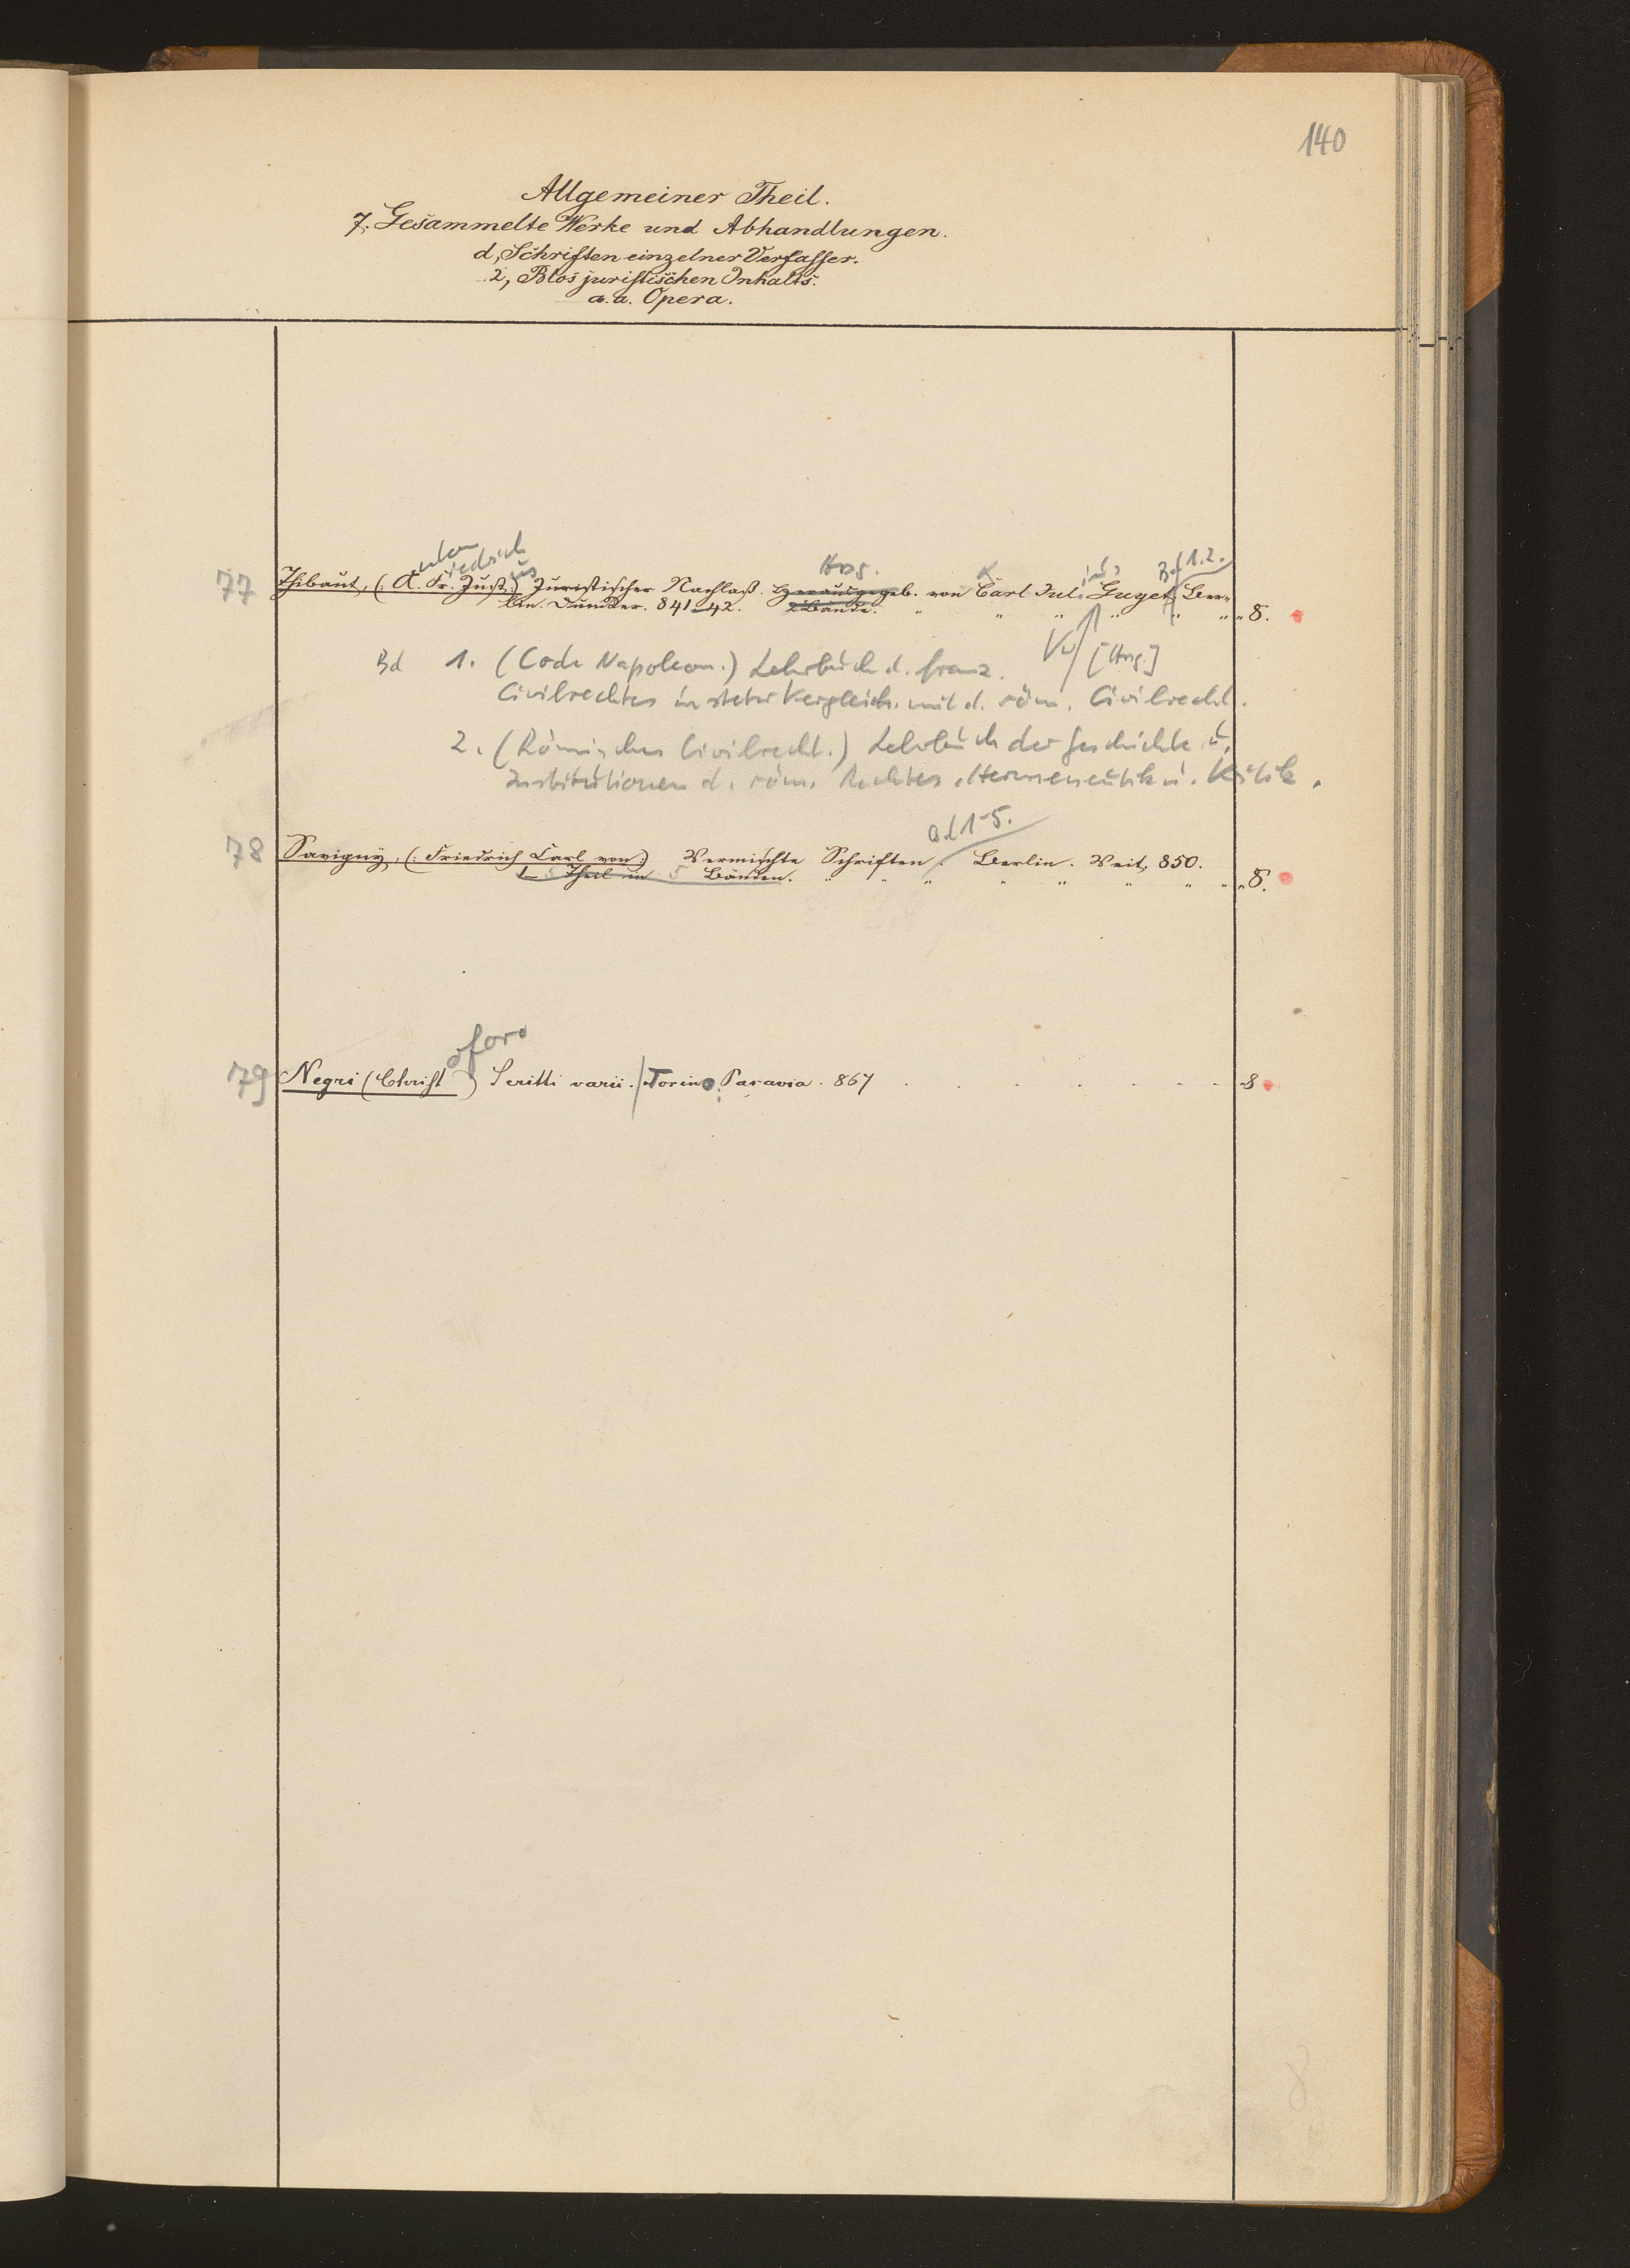 140
Allgemeiner Theil.
7. Gesammelte Werke und Abhandlungen.
d, Schriften einzelner Verfasser.
2, Blos juristischen Inhalts.
a.a. Opera.
nton iedrich us Hrsg. K ius Bd 1.2.
77 Thibaut, (: A. Fr. Just:) Juristischer Nachlaß. Herausgegeb. von Carl Jul. Guyet Ber-
lin. Duncker. 841-42. 2 Bände. " " " " " " 8.
[Hrsg.]
Bd 1. (Code Napoleon.) Lehrbuch d. franz.
Civilrechtes in steter Vergleich. mit d. röm. Civilrecht.
2. (Römisches Civilrecht.) Lehrbuch der Geschichte u.
Institutionen d. röm. Rechtes. Hermeneutik u. Kritik.
Bd 1-5.
78 Savigny, (: Friedrich Carl von:) Vermischte Schriften. Berlin. Veit, 850.
Theil in 5 Bänden. " " " " " " " " 8.
oforo
79 Negri (Christ ) Scritti varii. Torino. Paravia. 867 . . . . . . . . 8
8